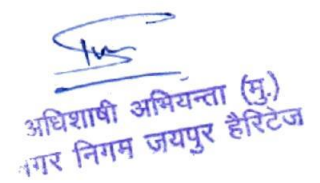 अधिशाषी अभियन्ता (मु.)
नगर निगम जयपुर हैरिटेज